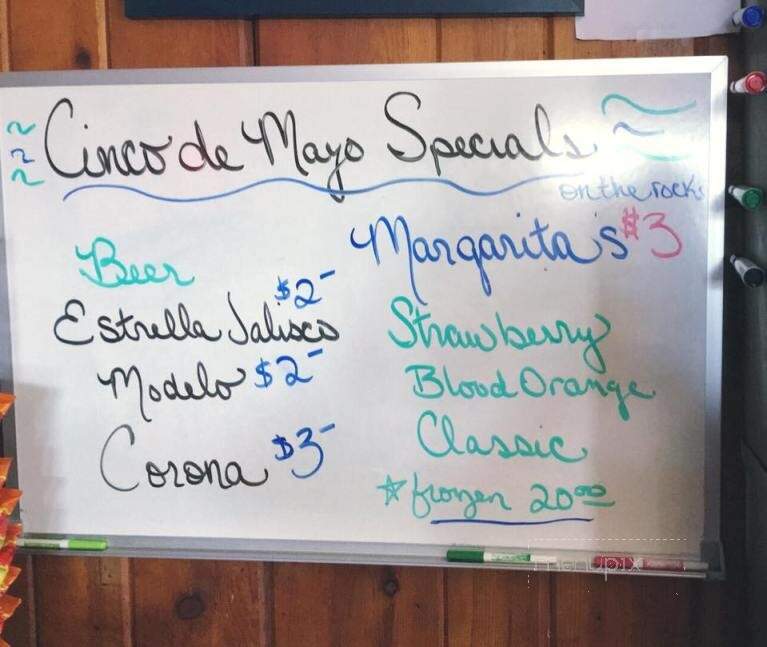 Cinco de Mayo Specials
on the rocks
Margarita's $3
Beer
$2-
Estrella Jalisco
Modelo $2-
Corona $3-
Strawberry
Blood Orange
Classic
☆frozen 20⁰⁰
menupix